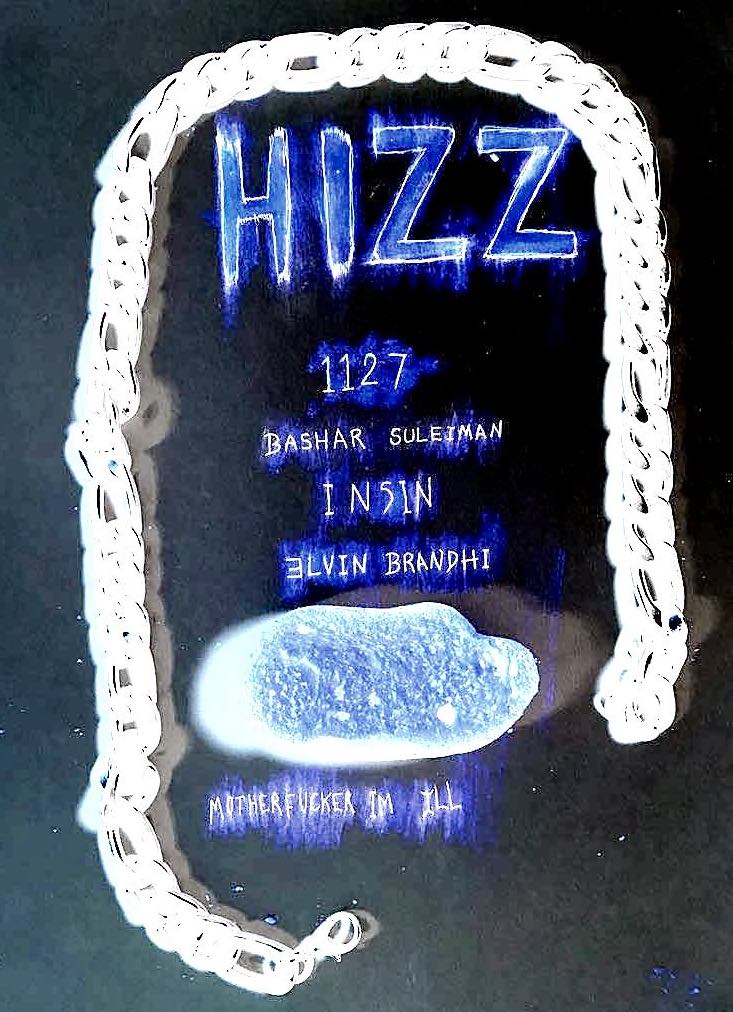 HIZZ
1127
BASHAR SULEIMAN
IN5IN
ƎLVIN BRANDHI
MOTHERFUCKER IM ILL